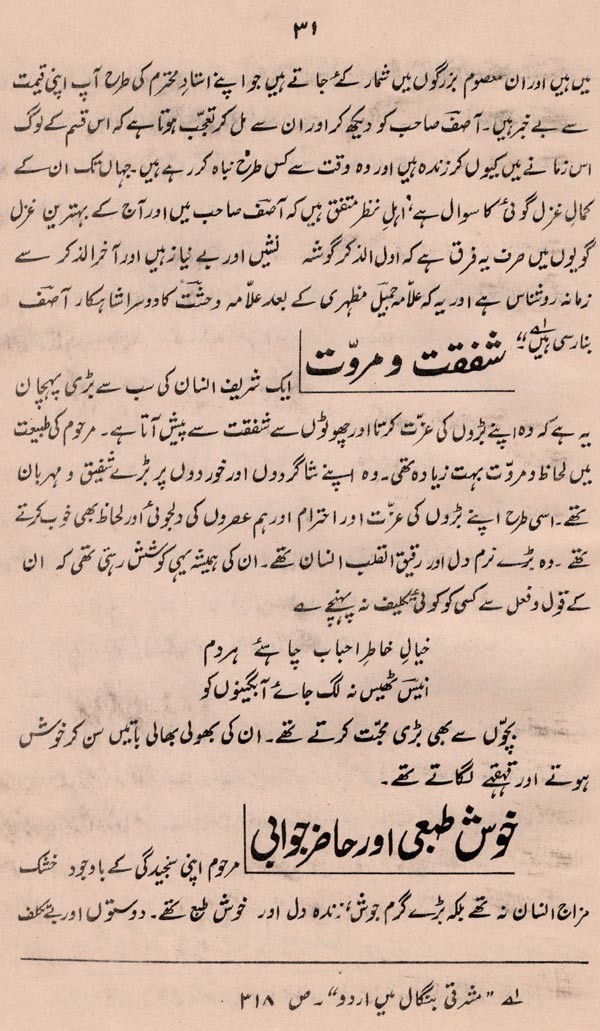 ۳۱
میں ہیں اور ان معصوم بزرگوں میں شمار کئے جاتے ہیں جو اپنے استادِ محترم کی طرح آپ اپنی قیمت
سے بے خبر ہیں۔ آصفؔ صاحب کو دیکھ کر اور ان سے مل کر تعجّب ہوتا ہے کہ اس قسم کے لوگ
اس زمانے میں کیوں کر زندہ ہیں اور وہ وقت سے کس طرح نباہ کر رہے ہیں۔ جہاں تک ان کے
کمالِ غزل گوئی کا سوال ہے، اہلِ نظر متفق ہیں کہ آصفؔ صاحب میں اور آج کے بہترین غزل
گویوں میں صرف یہ فرق ہے کہ اول الذکر گوشہ نشیں اور بے نیاز ہیں اور آخر الذکر سے
زمانہ روشناس ہے اور یہ کہ علّامہ جمیلؔ مظہری کے بعد علّامہ وحشتؔ کا دوسرا شاہکار آصفؔ
بنارسی ہیں"۔ ۱ے
شفقت و مروّت
ایک شریف انسان کی سب سے بڑی پہچان
یہ ہے کہ وہ اپنے بڑوں کی عزّت کرتا اور چھوٹوں سے شفقت سے پیش آتا ہے۔ مرحوم کی طبیعت
میں لحاظ و مروّت بہت زیادہ تھی۔ وہ اپنے شاگردوں اور خوردوں پر بڑے شفیق و مہربان
تھے۔ اسی طرح اپنے بڑوں کی عزّت اور احترام اور ہم عصروں کی دلجوئی اور لحاظ بھی خوب کرتے
تھے۔ وہ بڑے نرم دل اور رقیق القلب انسان تھے۔ ان کی ہمیشہ یہی کوشش رہتی تھی کہ ان
کے قول و فعل سے کسی کو کوئی تکلیف نہ پہنچے ؎
خیالِ خاطرِ احباب چاہئے ہر دم
انیسؔ ٹھیس نہ لگ جائے آبگینوں کو
بچّوں سے بھی بڑی محبّت کرتے تھے۔ ان کی بھولی بھالی باتیں سن کر خوش
ہوتے اور قہقہے لگاتے تھے۔
خوش طبعی اور حاضر جوابی
مرحوم اپنی سنجیدگی کے باوجود خشک
مزاج انسان نہ تھے بلکہ بڑے گرم جوش، زندہ دل اور خوش طبع تھے۔ دوستوں اور بے تکلف
۱ے "مشرقی بنگال میں اردو"۔ ص ۳۱۸